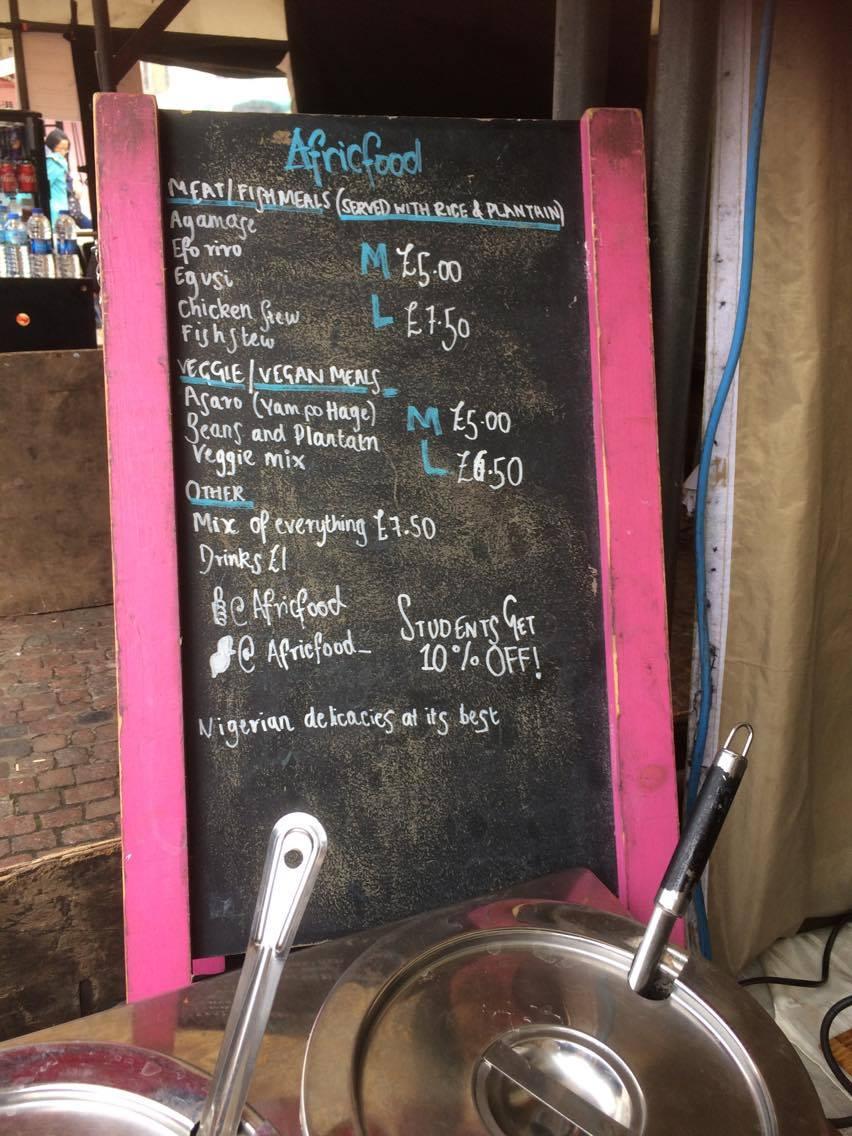 Africfood
MEAT/FISH MEALS (SERVED WITH RICE & PLANTAIN)
Ayamase
Efo riro
Egusi
Chicken Stew
Fish stew
M £5.00
L £7.50
VEGGIE/VEGAN MEALS
Asaro (Yam po Hage)
Beans and Plantain
Veggie mix
M £5.00
L £6.50
OTHER
Mix of everything £7.50
Drinks £1
@Africfood
@Africfood_
STUDENTS GET
10% OFF!
Nigerian delicacies at its best